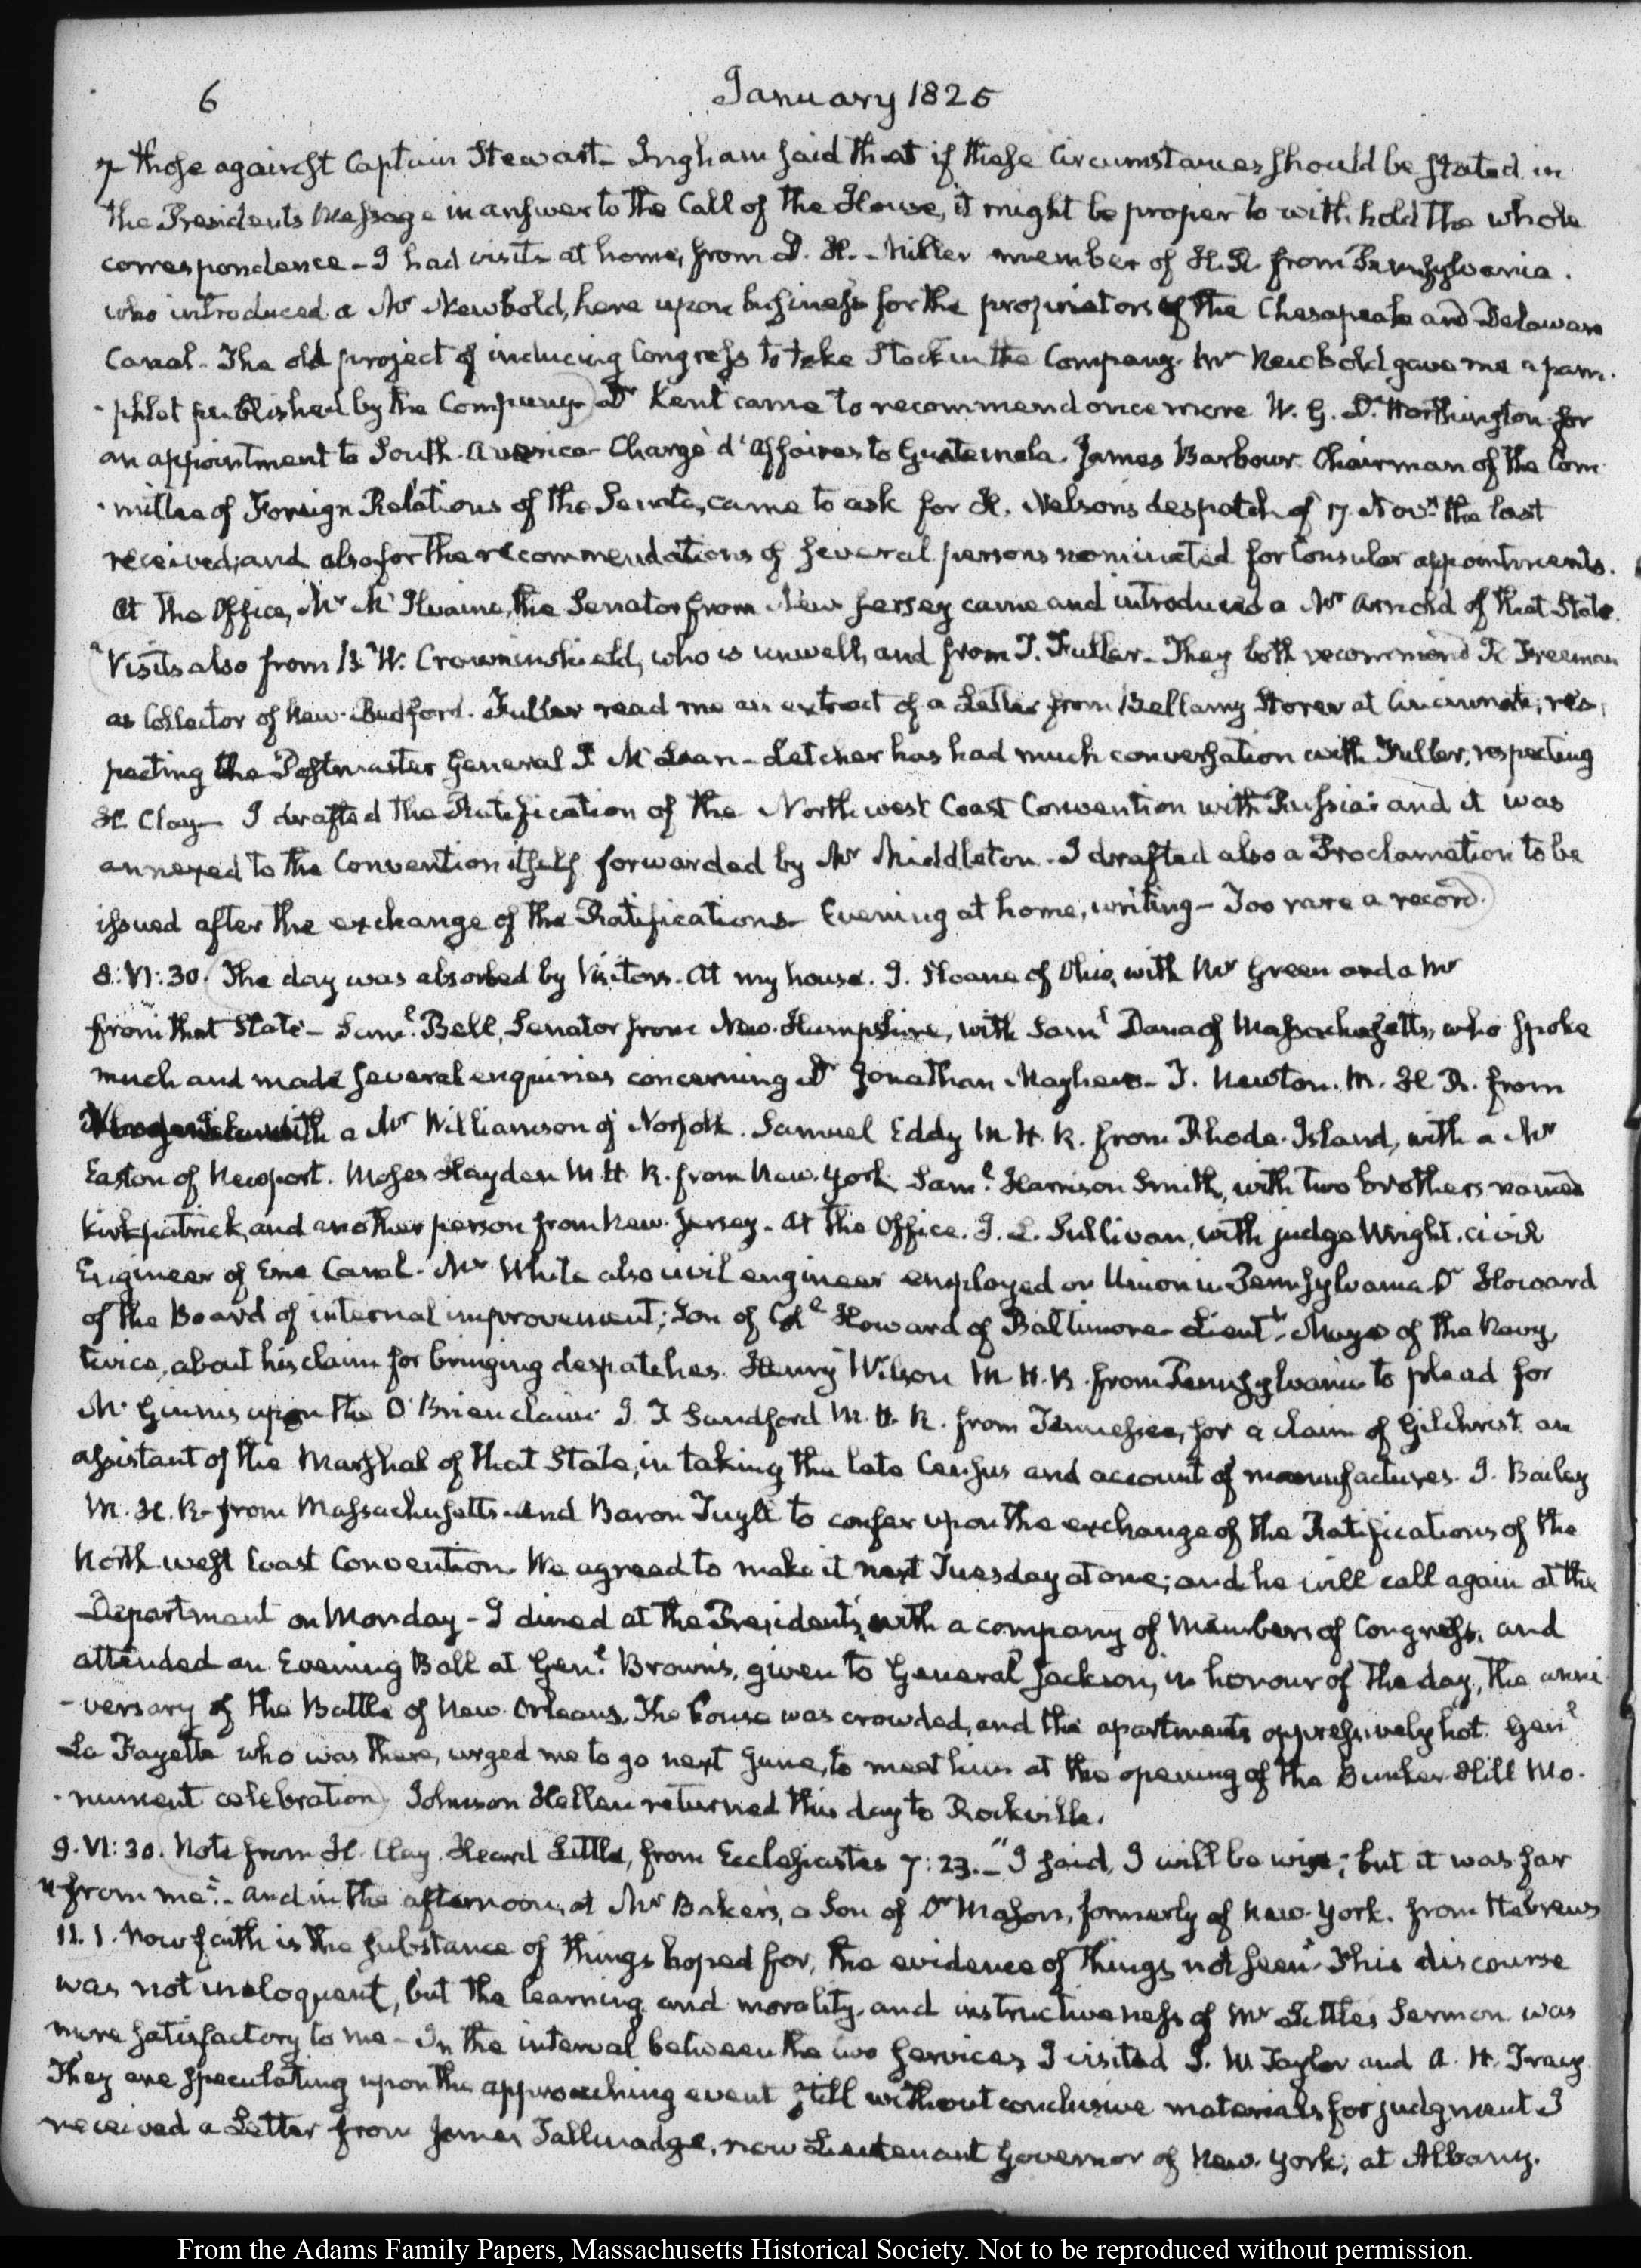 6
January 1825
7 those against Captain Stewart- Ingham said that if these Circumstances should be stated in
the Presidents Message in answer to the Call of the House, it might be proper to withhold the whole
correspondence- I had visits at home, from D. H. Miller member of H. R. from Pennsylvania.
who introduced a Mr Newbold, here upon business for the proprietors of the Chesapeake and Delaware
Canal- The old project of inducing Congress to take Stock in the Company. Mr Newbold gave me a pam-
-phlet published by the Company- Dr Kent came to recommend once more W. G. D. Worthington for
an appointment to South-America- Chargé d'Affaires to Guatemala. James Barbour Chairman of the Com
-mittee of Foreign Relations of the Senate, came to ask for H. Nelson's despatch of 17. Novr the last
received; and also for the recommendations of several persons nominated for Consular appointments.
At the Office, Mr McIlvaine, the Senator from New Jersey came and introduced a Mr Arnold of that State.
Visits also from B. W. Crowninshield, who is unwell, and from T. Fuller- They both recommend Freeman
as Collector of New-Bedford. Fuller read me an extract of a Letter from Bellamy Storer at Cincinnati, res-
pecting the Postmaster General J McLean- Letcher has had much conversation with Fuller, respecting
H. Clay- I drafted the Ratification of the Northwest Coast Convention with Russia: and it was
annexed to the Convention itself forwarded by Mr Middleton- I drafted also a Proclamation to be
issued after the exchange of the Ratifications- Evening at home, writing- Too rare a record.
8. VI:30. The day was absorbed by Visitors- At my house. J. Sloane of Ohio, with Mr Green and a Mr
from that State- Saml Bell, Senator from New-Hampshire, with Saml Dana of Massachusetts, who spoke
much and made several enquiries concerning Dr Jonathan Mayhew- T. Newton. M. H. R. from
with a Mr Williamson of Norfolk. Samuel Eddy M. H. R. from Rhode-Island, with a Mr
Easton of Newport. Moses Hayden M. H. R. from New-York Saml Harrison Smith, with two brothers named
Kirkpatrick, and another person from New-Jersey- At the Office. J. L. Sullivan, with judge Wright, civil
Engineer of Erie Canal- Mr White also civil engineer employed on Union in Pennsylvania Dr Howard
of the Board of internal improvement; Son of Coll Howard of Baltimore- Lieutt Mayo of the Navy,
twice, about his claim for bringing despatches. Henry Wilson M. H. R. from Pennsylvania to plead for
McGinnis upon the O'Brien claim J. T Sandford M. H. R. from Tennessee, for a claim of Gilchrist an
assistant of the Marshal of that State, in taking the late Census and account of manufactures. J. Bailey
M. H. R- from Massachusetts- and Baron Tuyll to confer upon the exchange of the Ratifications of the
North-west Coast Convention. We agreed to make it next Tuesday at one; and he will call again at the
Department on Monday- I dined at the President's, with a company of Members of Congress, and
attended an Evening Ball at Genl Brown's, given to General Jackson, in honour of the day, the anni-
-versary of the Battle of New-Orleans. The house was crowded, and the apartments oppressively hot. Genl
La Fayette who was there, urged me to go next June, to meet him at the opening of the Bunker-Hill Mo-
-nument celebration Johnson Hellen returned this day to Rockville.
9. VI:30. Note from H. Clay. Heard Little, from Ecclesiastes 7:23.- "I said, I will be wise; but it was far
"from me".- and in the afternoon, at Mr Baker's, a Son of Dr Mason, formerly of New-York. from Hebrews
11. 1. "Now faith is the substance of things hoped for, the evidence of things not seen" This discourse
was not ineloquent, but the learning and morality and instructiveness of Mr Little's Sermon was
more satisfactory to me- In the interval between the two services I visited J. W. Taylor and A. H. Tracy.
They are speculating upon the approaching event still without conclusive materials for judgment I
received a Letter from James Tallmadge, now Lieutenant Governor of New-York, at Albany.
From the Adams Family Papers, Massachusetts Historical Society. Not to be reproduced without permission.